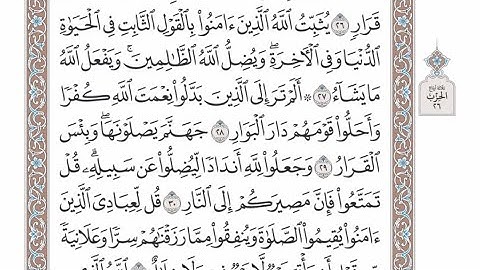 قَرَارٍ ٢٦ يُثَبِّتُ ٱللَّهُ ٱلَّذِينَ ءَامَنُوا۟ بِٱلْقَوْلِ ٱلثَّابِتِ فِى ٱلْحَيَوٰةِ
ٱلدُّنْيَا وَفِى ٱلْءَاخِرَةِ ۖ وَيُضِلُّ ٱللَّهُ ٱلظَّٰلِمِينَ ۚ وَيَفْعَلُ ٱللَّهُ
مَا يَشَآءُ ٢٧ ۞ أَلَمْ تَرَ إِلَى ٱلَّذِينَ بَدَّلُوا۟ نِعْمَتَ ٱللَّهِ كُفْرًا
وَأَحَلُّوا۟ قَوْمَهُمْ دَارَ ٱلْبَوَارِ ٢٨ جَهَنَّمَ يَصْلَوْنَهَا ۖ وَبِئْسَ
ٱلْقَرَارُ ٢٩ وَجَعَلُوا۟ لِلَّهِ أَندَادًا لِّيُضِلُّوا۟ عَن سَبِيلِهِۦ ۗ قُلْ
تَمَتَّعُوا۟ فَإِنَّ مَصِيرَكُمْ إِلَى ٱلنَّارِ ٣٠ قُل لِّعِبَادِىَ ٱلَّذِينَ
ءَامَنُوا۟ يُقِيمُوا۟ ٱلصَّلَوٰةَ وَيُنفِقُوا۟ مِمَّا رَزَقْنَٰهُمْ سِرًّا وَعَلَانِيَةً
الحزب
٢٦